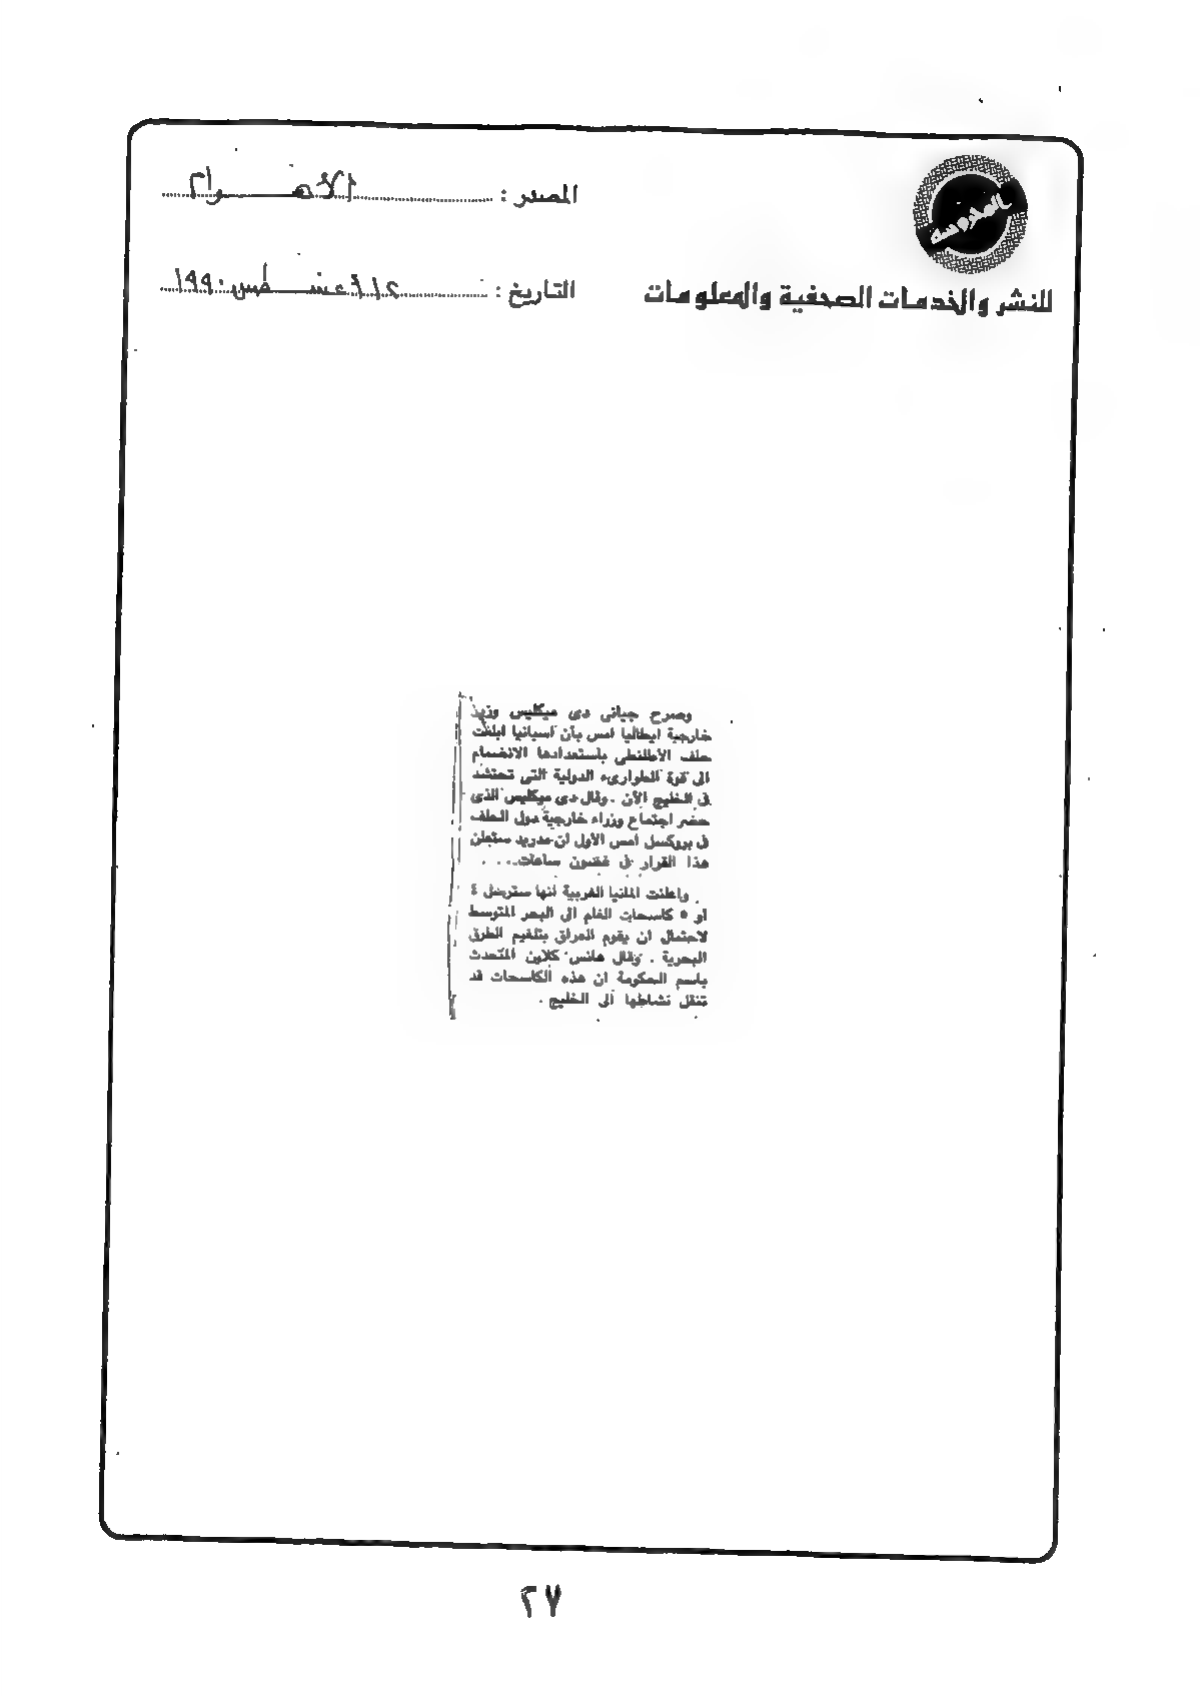 المحروسة
للنشر والخدمات الصحفية والمعلومات
المصدر : الأهرام
التاريخ : ١٢ أغسطس ١٩٩٠
وصرح جيانى دى ميكليس وزير
خارجية ايطاليا امس بأن اسبانيا ابلغت
حلف الأطلنطى باستعدادها الانضمام
الى قوة الطوارىء الدولية التى تحتشد
فى الخليج الآن . وقال دى ميكليس الذى
حضر اجتماع وزراء خارجية دول الحلف
فى بروكسل امس الأول ان مدريد ستعلن
هذا القرار فى غضون ساعات . . .
واعلنت المانيا الغربية انها سترسل ٤
أو ٥ كاسحات الغام الى البحر المتوسط
لاحتمال ان يقوم العراق بتلغيم الطرق
البحرية . وقال هانس كلاين المتحدث
باسم الحكومة ان هذه الكاسحات قد
تنقل نشاطها الى الخليج .
٢٧